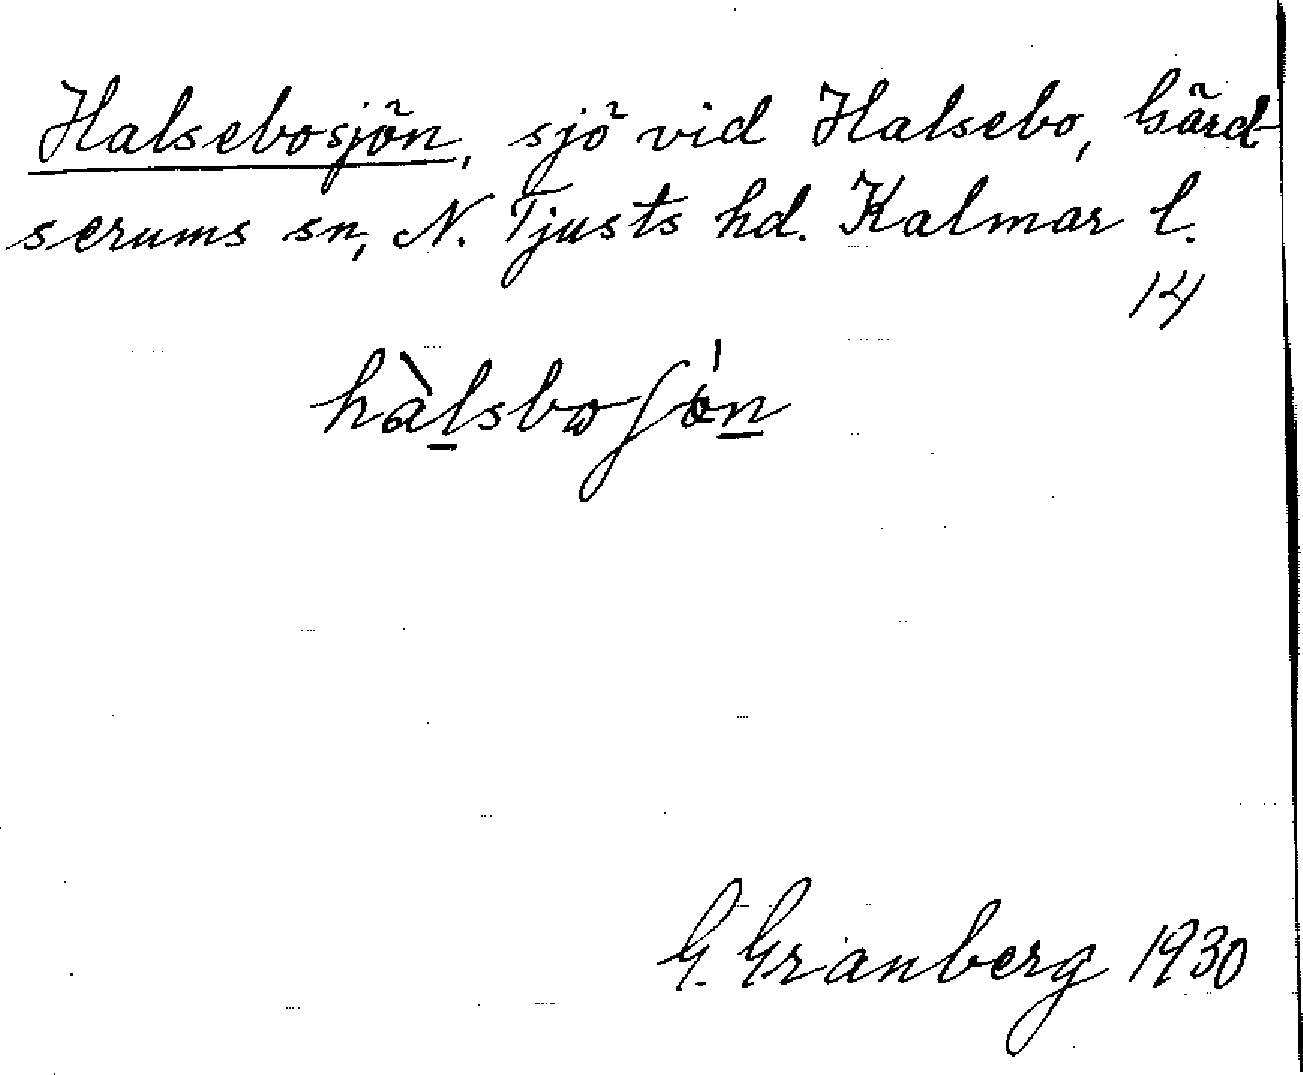 Halsebosjön, sjö vid Halsebo, Gärd-
serums sn, N. Tjusts hd. Kalmar l.
14
hàlsboʃön
G. Granberg 1930